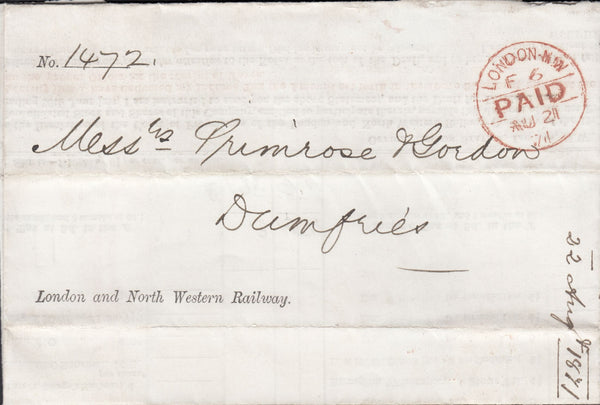 No. 1472.
LONDON·NW
F 6
PAID
AU 21
71
Mess.rs Primrose & Gordon
Dumfries
London and North Western Railway.
22 Augt 1871